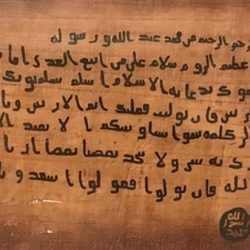 الرحيم من محمد عبد الله ورسوله
عظيم الروم سلام على من اتبع الهدى اما
بدعاية الاسلام اسلم تسلم يوتك
توليت فعليك اثم الاريسين ويا
كلمة سوا بيننا وبينكم الا نعبد الا
به شيا ولا يتخذ بعضنا بعضا اربابا
الله فان تولوا فقولوا اشهدوا
الله
رسول
محمد